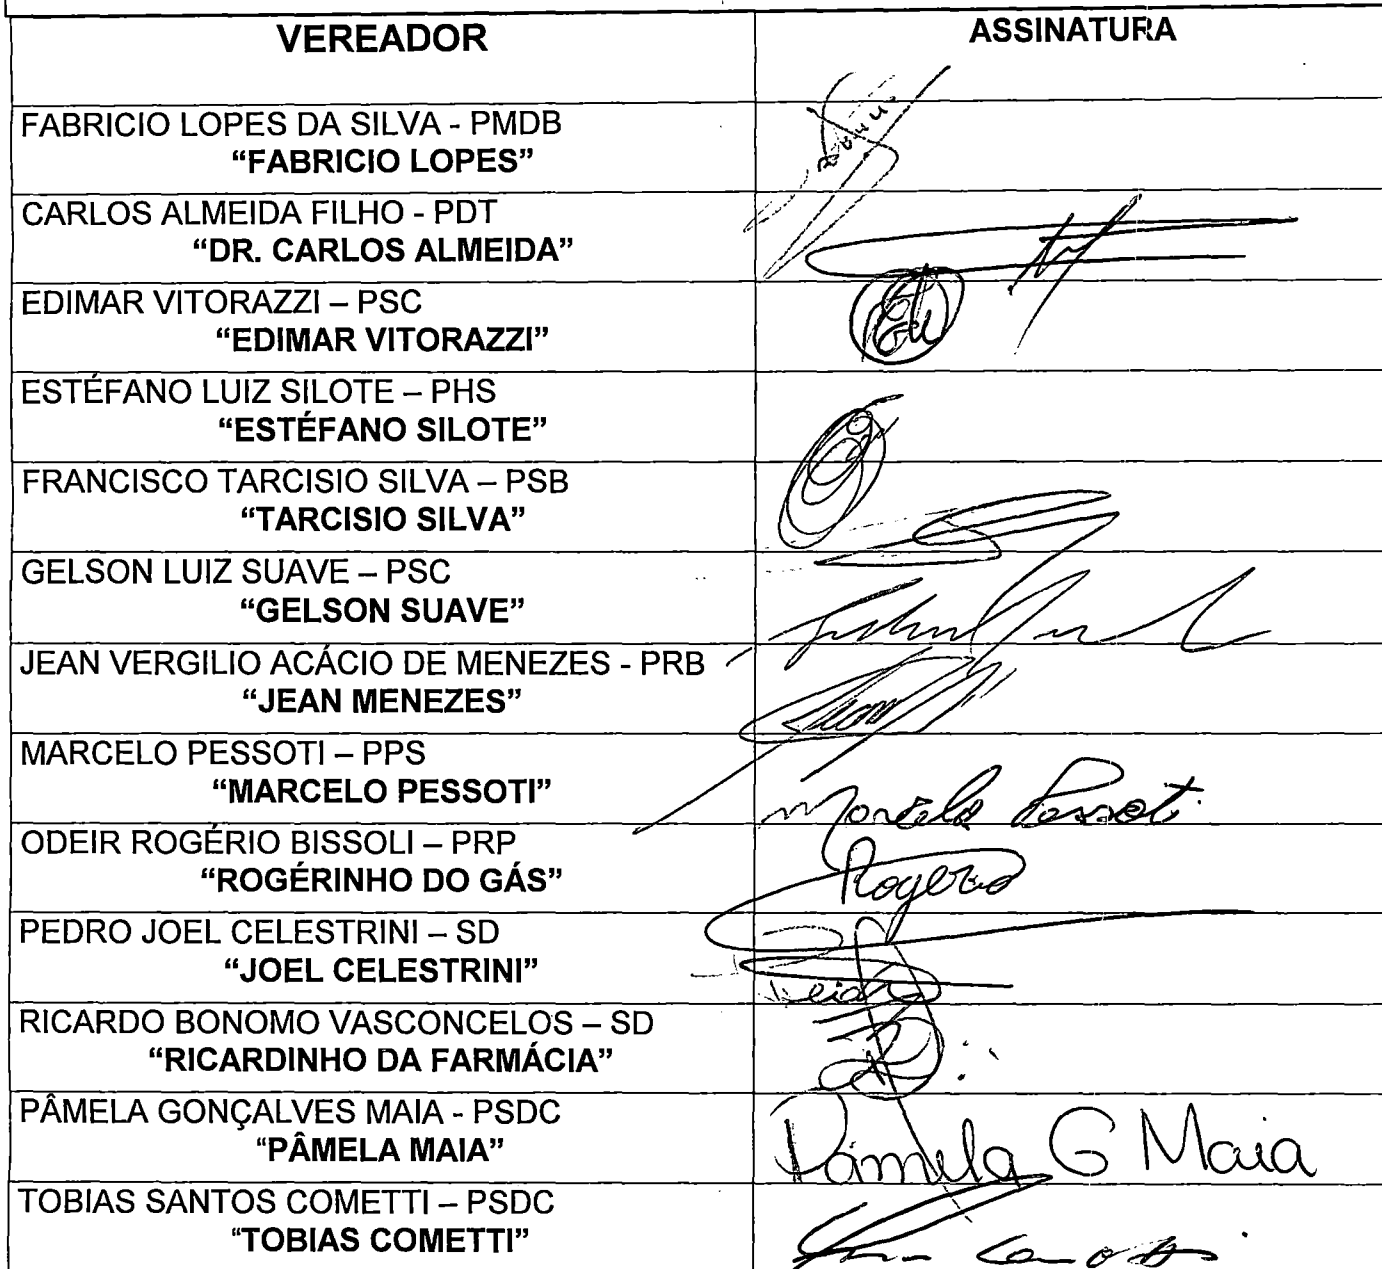 VEREADOR ASSINATURA
FABRICIO LOPES DA SILVA - PMDB
“FABRICIO LOPES”
CARLOS ALMEIDA FILHO - PDT
“DR. CARLOS ALMEIDA”
EDIMAR VITORAZZI – PSC
“EDIMAR VITORAZZI”
ESTÉFANO LUIZ SILOTE – PHS
“ESTÉFANO SILOTE”
FRANCISCO TARCISIO SILVA – PSB
“TARCISIO SILVA”
GELSON LUIZ SUAVE – PSC
“GELSON SUAVE”
JEAN VERGILIO ACÁCIO DE MENEZES - PRB
“JEAN MENEZES”
MARCELO PESSOTI – PPS
“MARCELO PESSOTI” Marcelo Pessoti
ODEIR ROGÉRIO BISSOLI – PRP
“ROGÉRINHO DO GÁS” Rogerio
PEDRO JOEL CELESTRINI – SD
“JOEL CELESTRINI”
RICARDO BONOMO VASCONCELOS – SD
“RICARDINHO DA FARMÁCIA”
PÂMELA GONÇALVES MAIA - PSDC
“PÂMELA MAIA” Pâmela G Maia
TOBIAS SANTOS COMETTI – PSDC
“TOBIAS COMETTI”